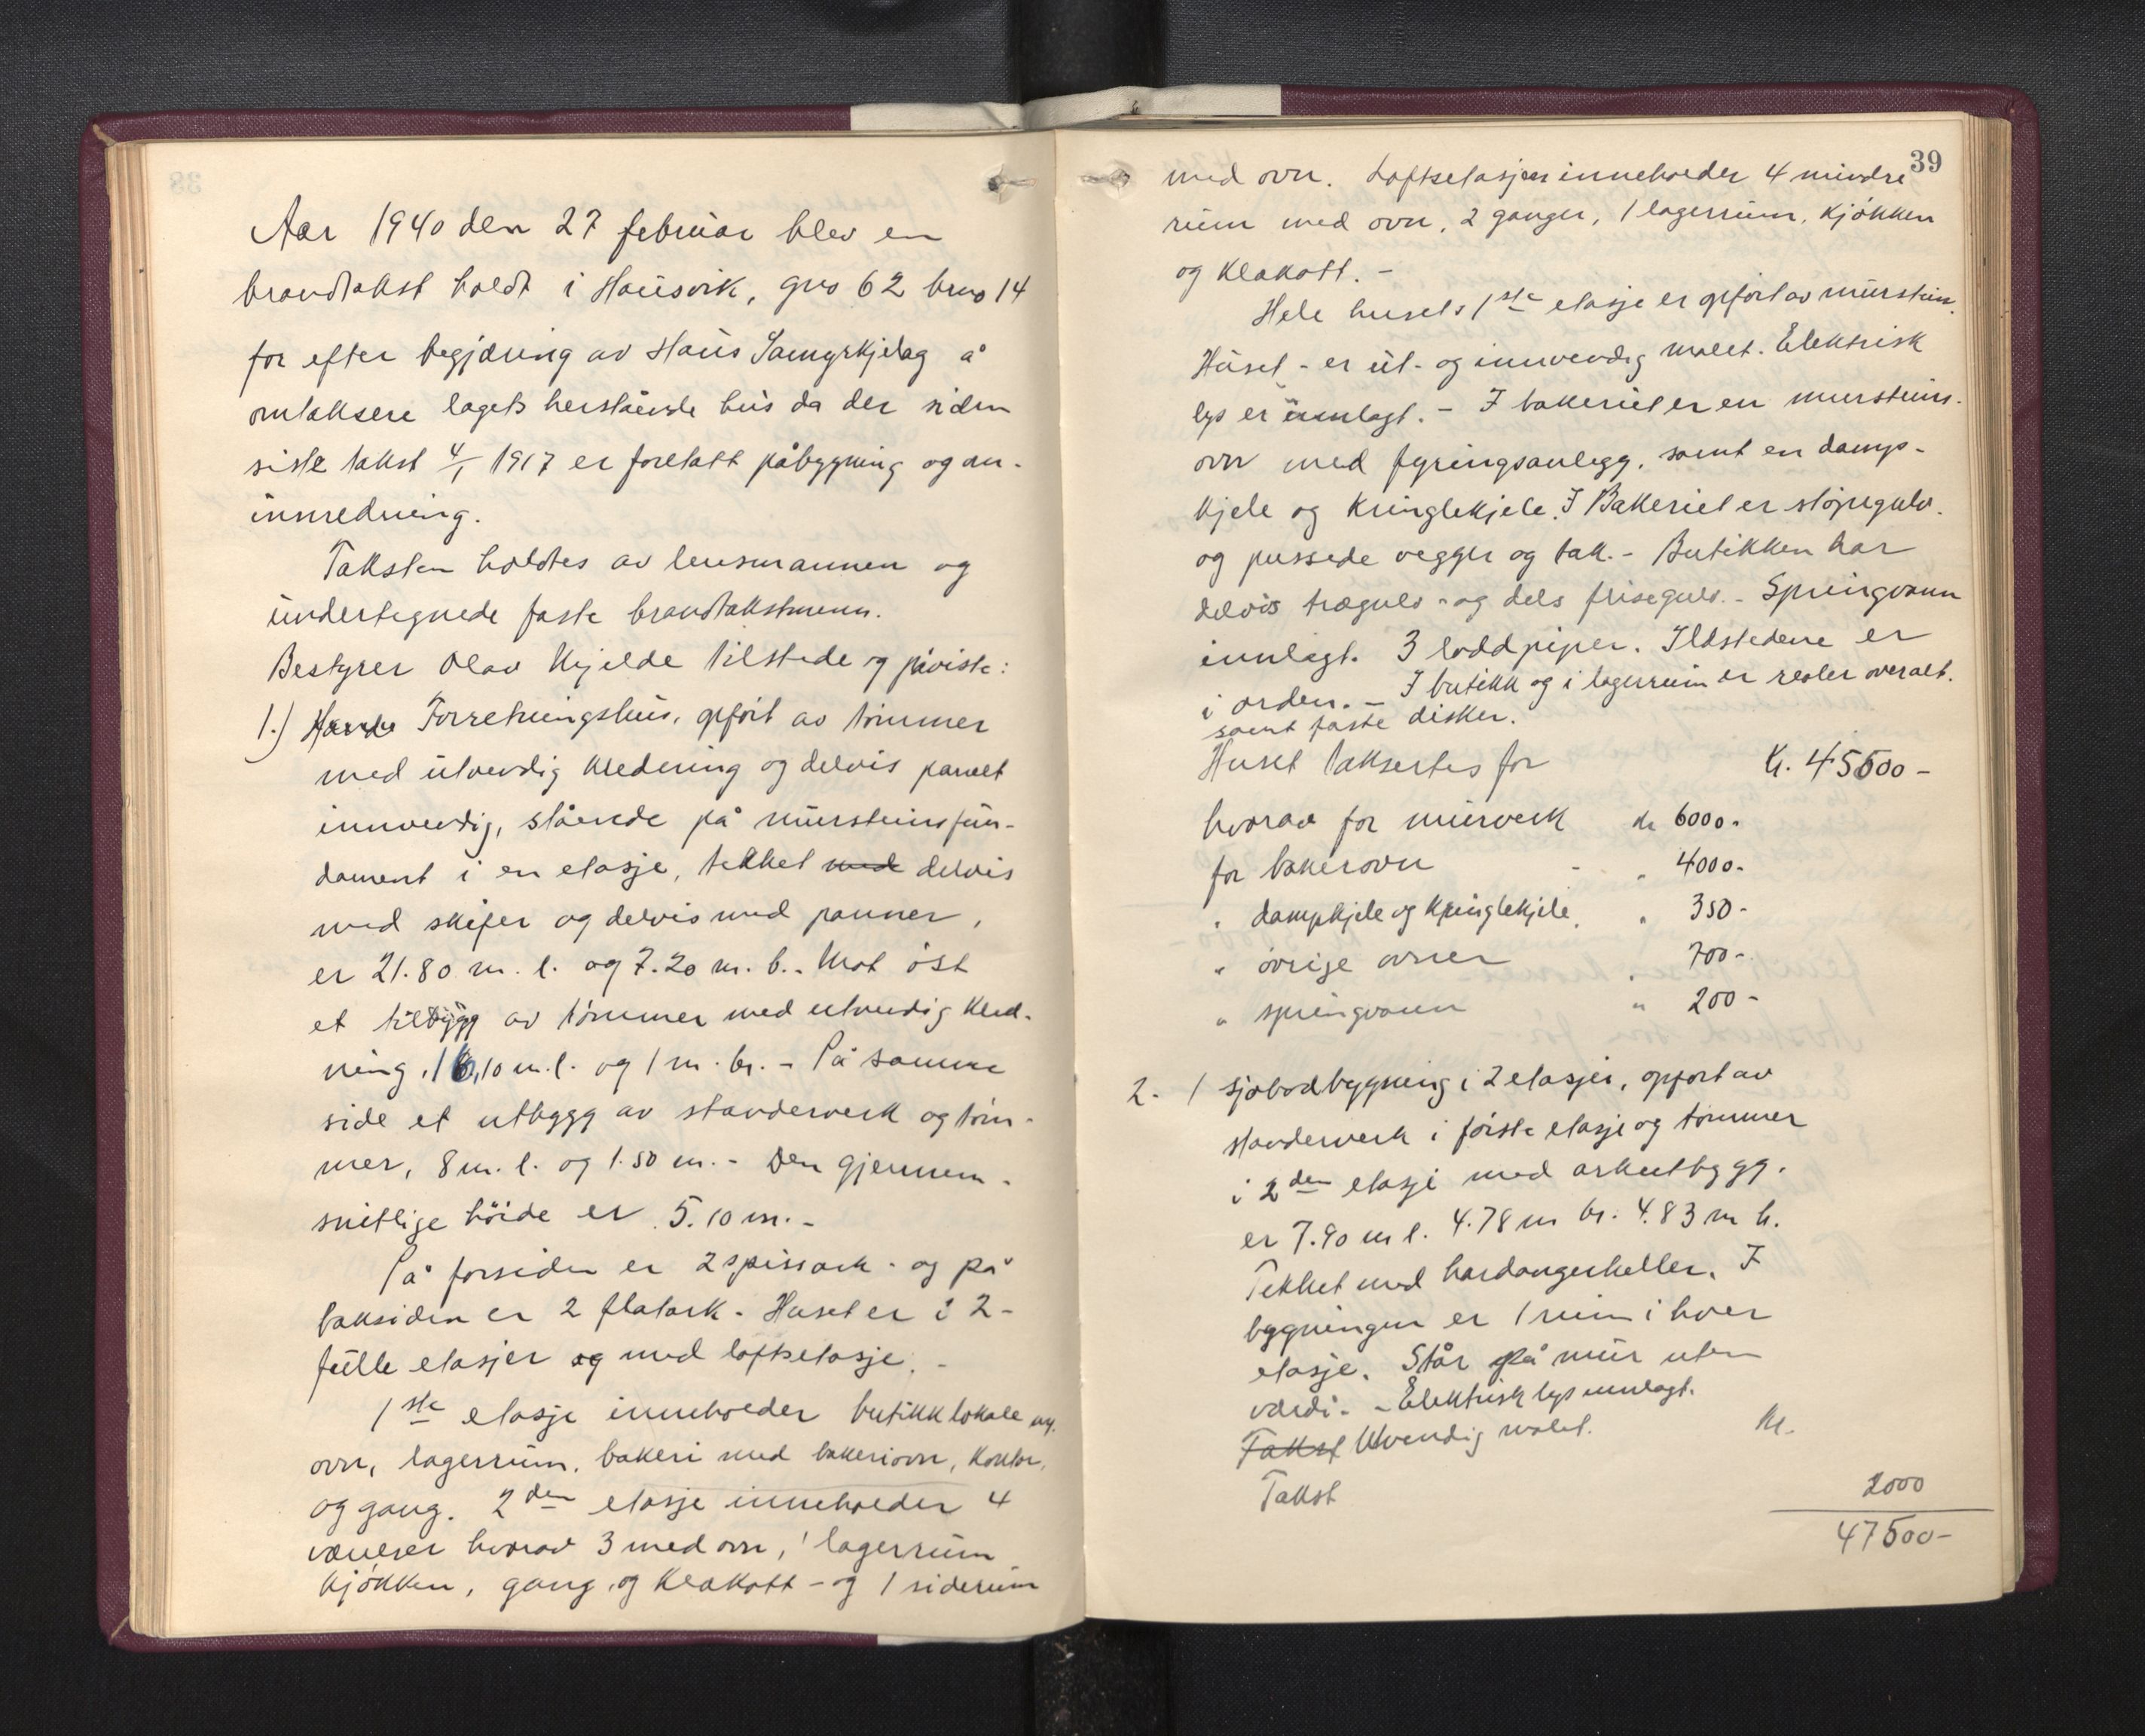 Aar 1940 den 27 februar blev en
brandtakst holdt i Hausvik, gno 62 brno 14
for efter begjæring av Haus Samyrkjelag å
omtaksere lagets herstående hus da der siden
siste takst 4/1 1917 er foretatt påbygning og an-
innredning.
Taksten holdtes av lensmannen og
undertegnede faste brandtakstmenn.
Bestyrer Olav Kjelde tilstede og påviste:
1.) Forretningshus, opført av tømmer
med utvendig kledning og delvis panelt
innvendig, stående på murstensfun-
dament i en etasje, tekket med delvis
med skifer og delvis med panner,
er 21.80 m. l. og 7.20 m. b.. Mot øst
et tilbygg av tømmer med utvendig kled-
ning, 16,10 m. l. og 1 m. br. - På samme
side et utbygg av standerverk og tøm-
mer, 8 m. l. og 1.50 m. - Den gjennem-
snitlige høide er 5.10 m. -
På forsiden er 2 spissark - og på
baksiden er 2 flatark. Huset er i 2-
fulle etasjer og med loftsetasje. -
1ste etasje inneholder butikklokale m.
ovn, lagerrum, bakeri med bakeriovn, kontor,
og gang. 2den etasje inneholder 4
værelser hvorav 3 med ovn, 1 lagerrum
kjøkken, gang, og klækott - og 1 siderum
39
med ovn. Loftsetasjen inneholder 4 mindre
rum med ovn, 2 ganger, 1 lagerrum, kjøkken
og klækott. -
Hele husets 1ste etasje er opført av murstein.
Huset - er ut- og innvendig malet. Elektrisk
lys er innlagt. - I bakeriet er en murstens-
ovn med fyringsanlegg, samt en damp-
kjele og kringlekjele. I Bakeriet er støpegulv.
og pussede vegger og tak. - Butikken har
delvis trægulv - og dels flisegulv. - Springvann
innlagt. 3 loddpiper. Ildstedene er
i orden. - I butikk og i lagerrum er reoler overalt.
samt faste disker.
Huset taksertes for Kr. 45500 -
hvorav for murverk kr 6000 -
for bakerovn - " 4000 -
" dampkjele og kringlekjele. " 350 -
" øvrige ovner " 700 -
" springvann " 200 -
2. 1 sjøbodbygning i 2 etasjer, opført av
standerverk i første etasje og tømmer
i 2den etasje med arkutbygg.
er 7.90 m l. 4.78 m br. 4.83 m h.
Tekket med hardangerheller. I
bygningen er 1 rum i hver
etasje. Står på mur uten
værdi. - Elektrisk lys innlagt.
Takst Utvendig malet. Kr.
Takst 2000
47500 -